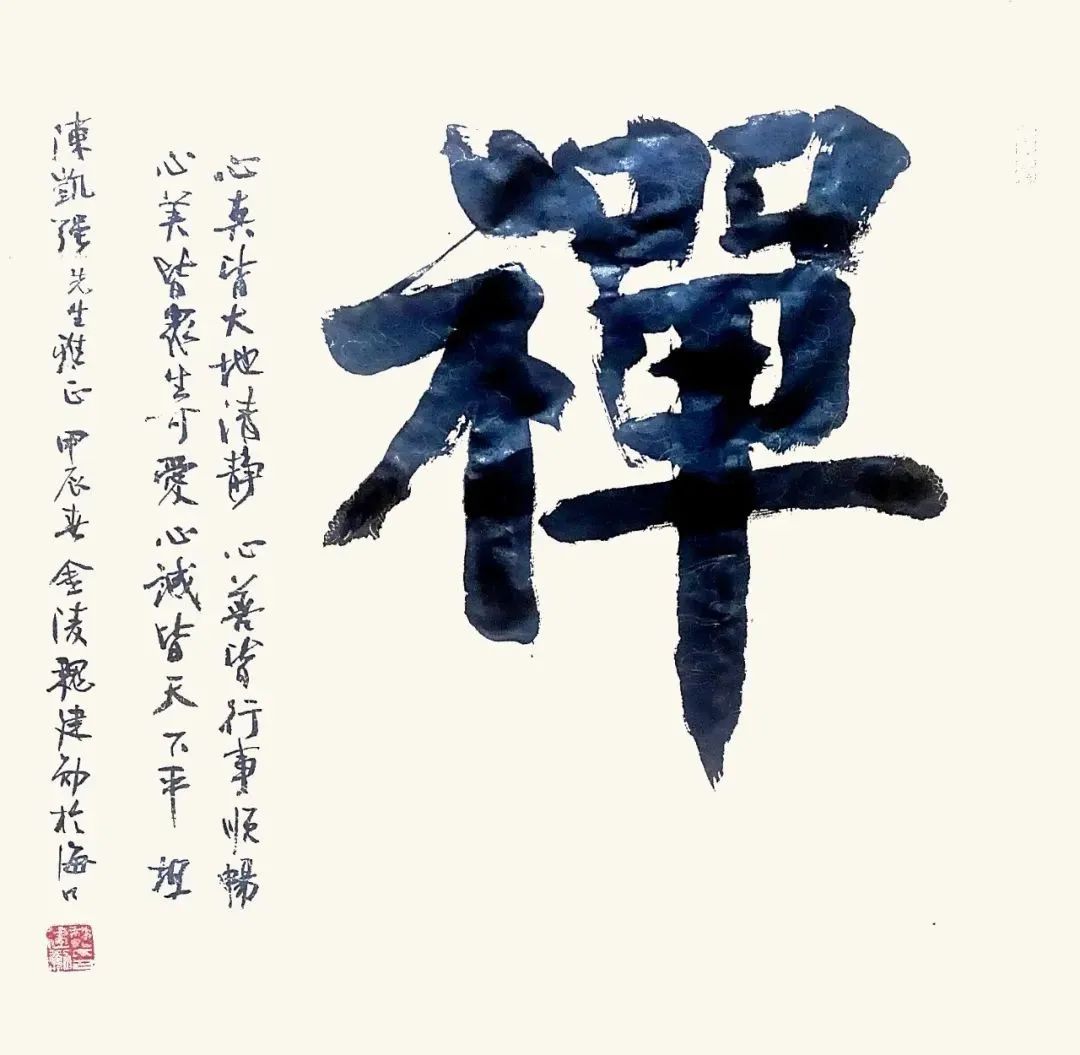 禪
心真皆大地清静 心善皆行事順暢
心美皆衆生可愛 心誠皆天下平
陳凱强先生雅正 甲辰春 金陵魏建勋於海口